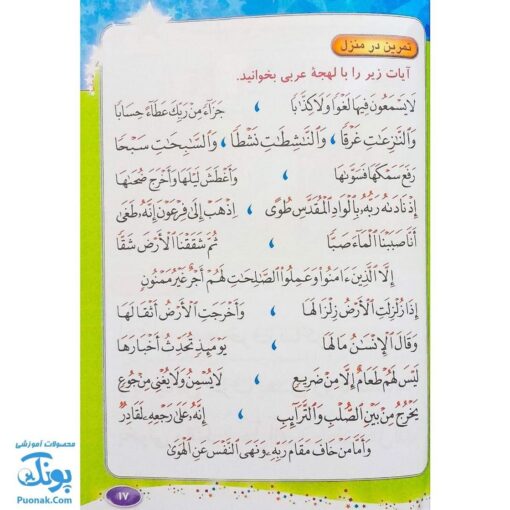 تمرین در منزل
آیات زیر را با لهجهٔ عربی بخوانید.
لَا يَسْمَعُونَ فِيهَا لَغْوًا وَلَا كِذَّابًا ، جَزَاءً مِنْ رَبِّكَ عَطَاءً حِسَابًا
وَالنَّازِعَاتِ غَرْقًا ، وَالنَّاشِطَاتِ نَشْطًا ، وَالسَّابِحَاتِ سَبْحًا
رَفَعَ سَمْكَهَا فَسَوَّاهَا ، وَأَغْطَشَ لَيْلَهَا وَأَخْرَجَ ضُحَاهَا
إِذْ نَادَاهُ رَبُّهُ بِالْوَادِ الْمُقَدَّسِ طُوًى ، اِذْهَبْ إِلَى فِرْعَوْنَ إِنَّهُ طَغَى
أَنَّا صَبَبْنَا الْمَاءَ صَبًّا ، ثُمَّ شَقَقْنَا الْأَرْضَ شَقًّا
إِلَّا الَّذِينَ ءَامَنُوا وَعَمِلُوا الصَّالِحَاتِ لَهُمْ أَجْرٌ غَيْرُ مَمْنُونٍ
إِذَا زُلْزِلَتِ الْأَرْضُ زِلْزَالَهَا ، وَأَخْرَجَتِ الْأَرْضُ أَثْقَالَهَا
وَقَالَ الْإِنْسَانُ مَا لَهَا ، يَوْمَئِذٍ تُحَدِّثُ أَخْبَارَهَا
لَيْسَ لَهُمْ طَعَامٌ إِلَّا مِنْ ضَرِيعٍ ، لَا يُسْمِنُ وَلَا يُغْنِي مِنْ جُوعٍ
يَخْرُجُ مِنْ بَيْنِ الصُّلْبِ وَالتَّرَائِبِ ، إِنَّهُ عَلَى رَجْعِهِ لَقَادِرٌ
وَأَمَّا مَنْ خَافَ مَقَامَ رَبِّهِ وَنَهَى النَّفْسَ عَنِ الْهَوَى
۱۷
محصولات آموزشی
پونک
Puonak.Com